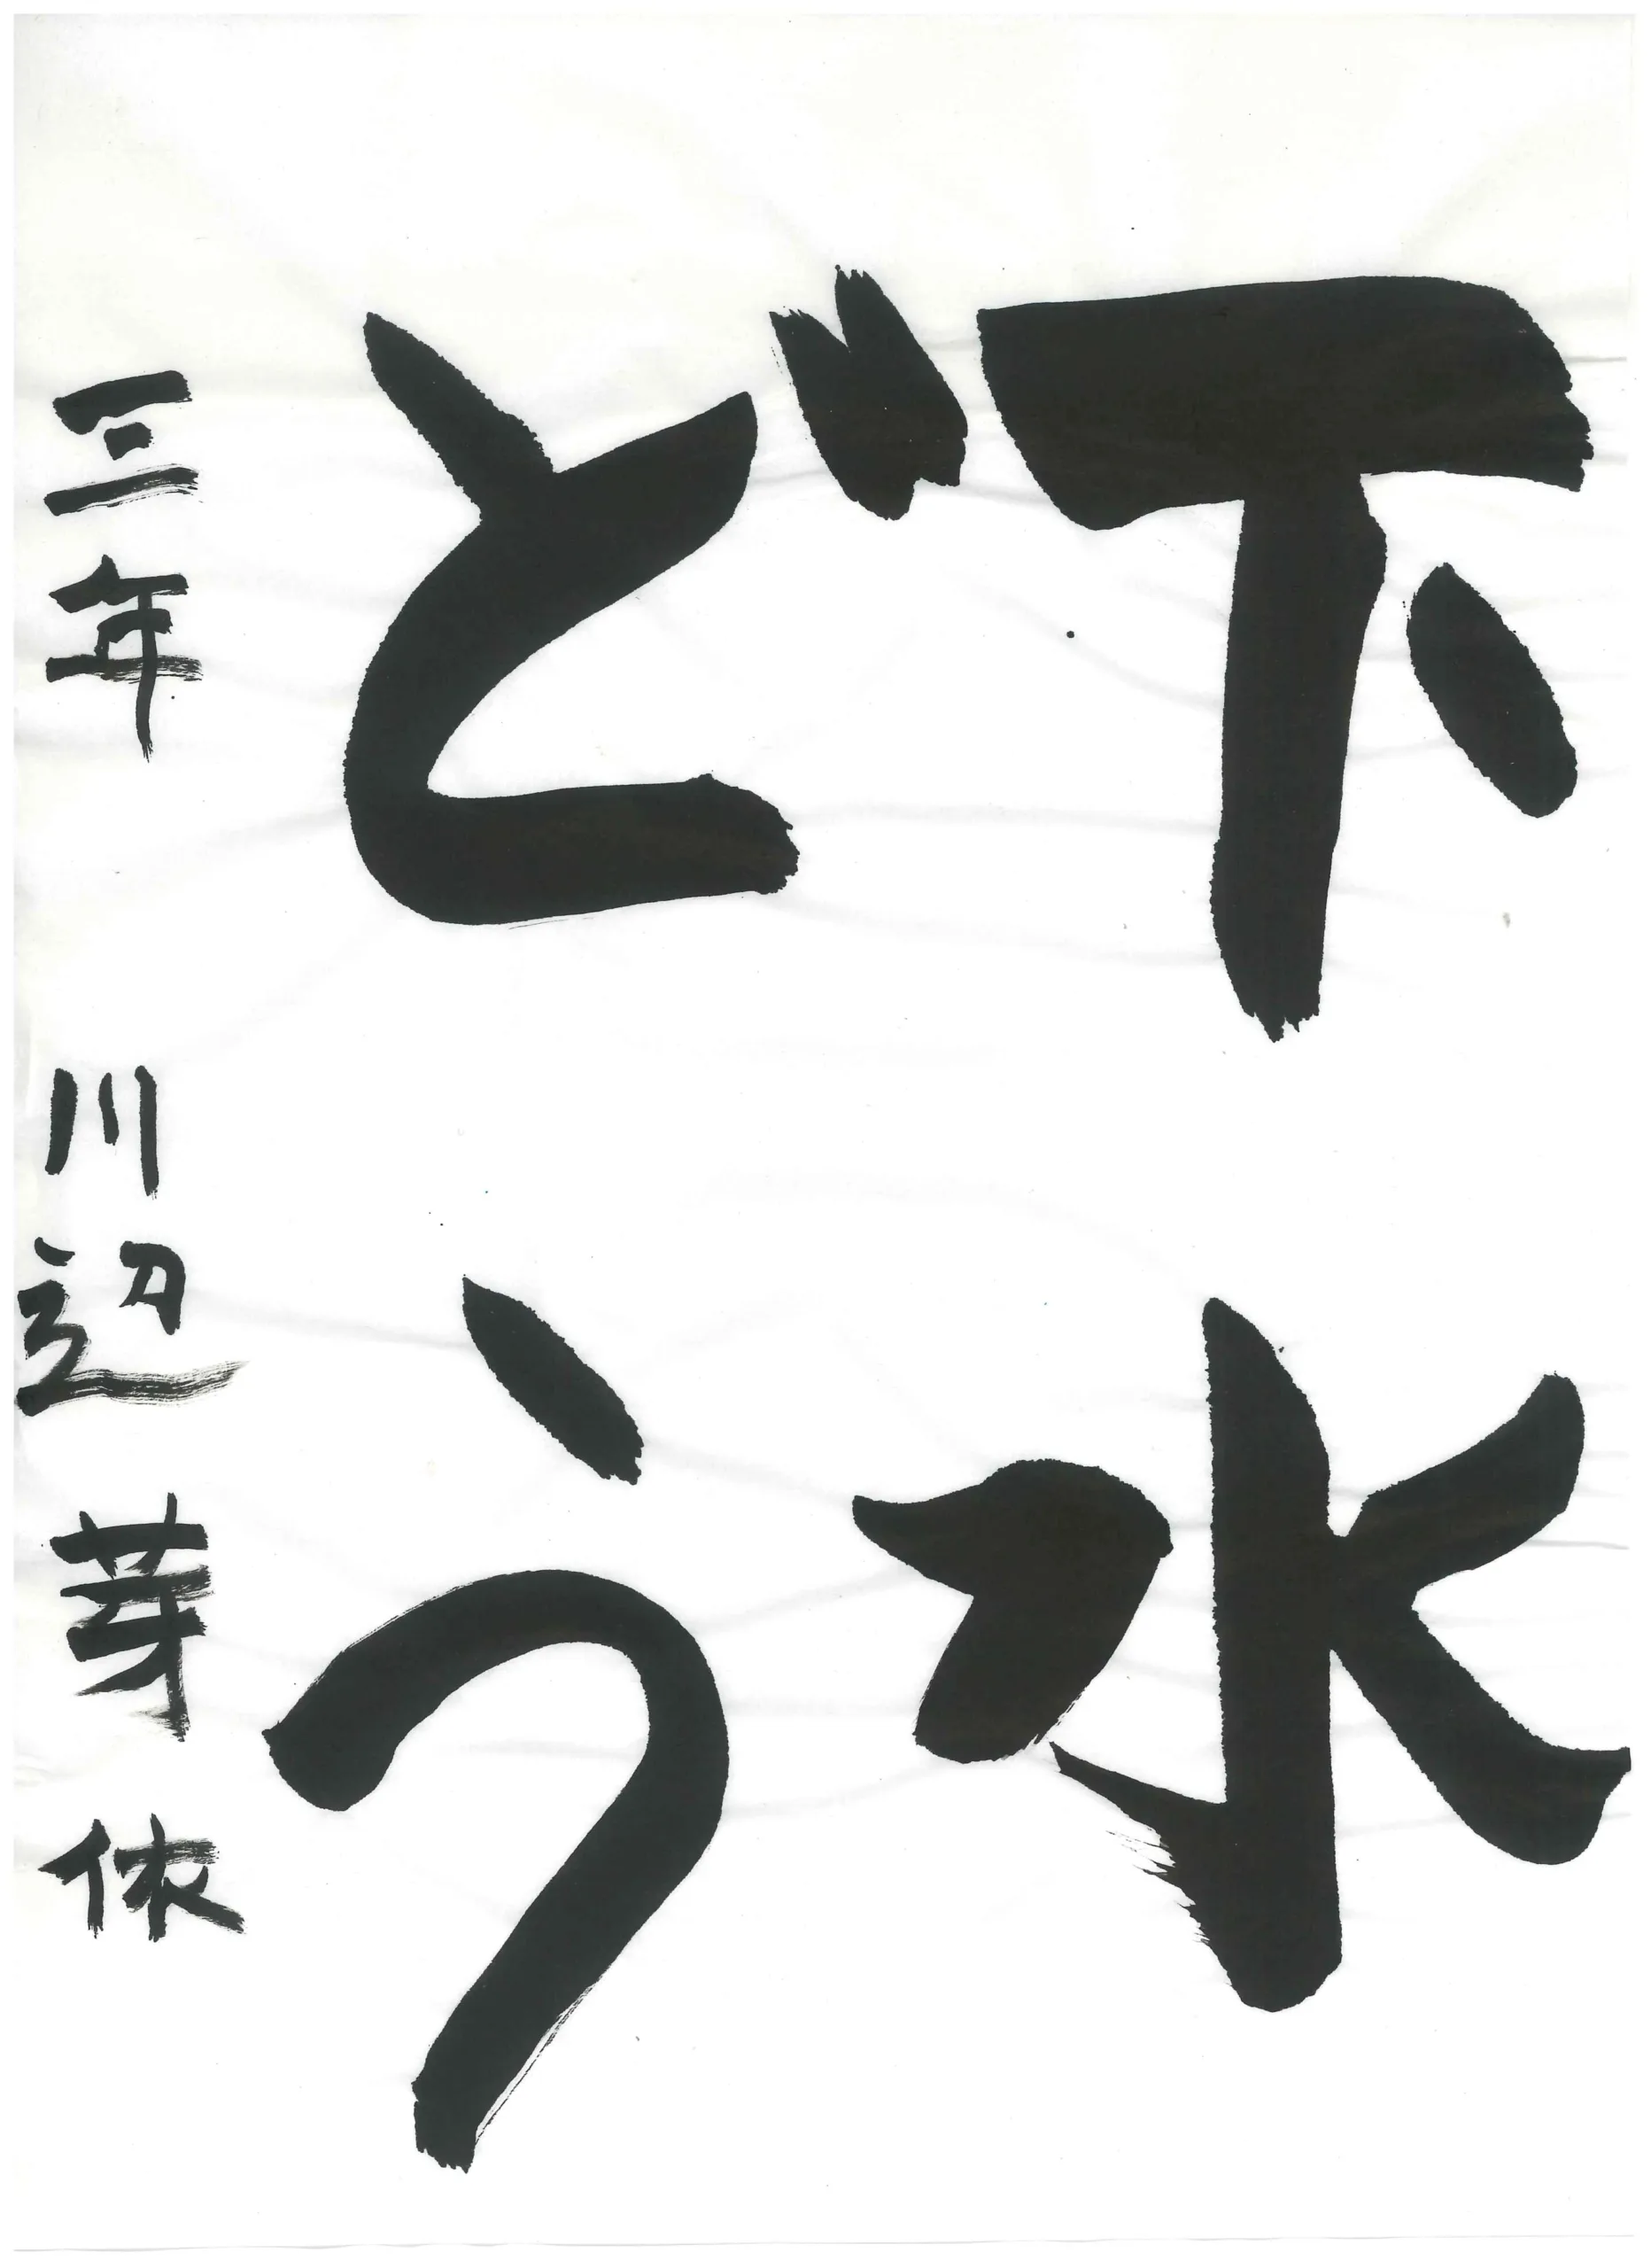 下水
どう
三年 川辺芽依